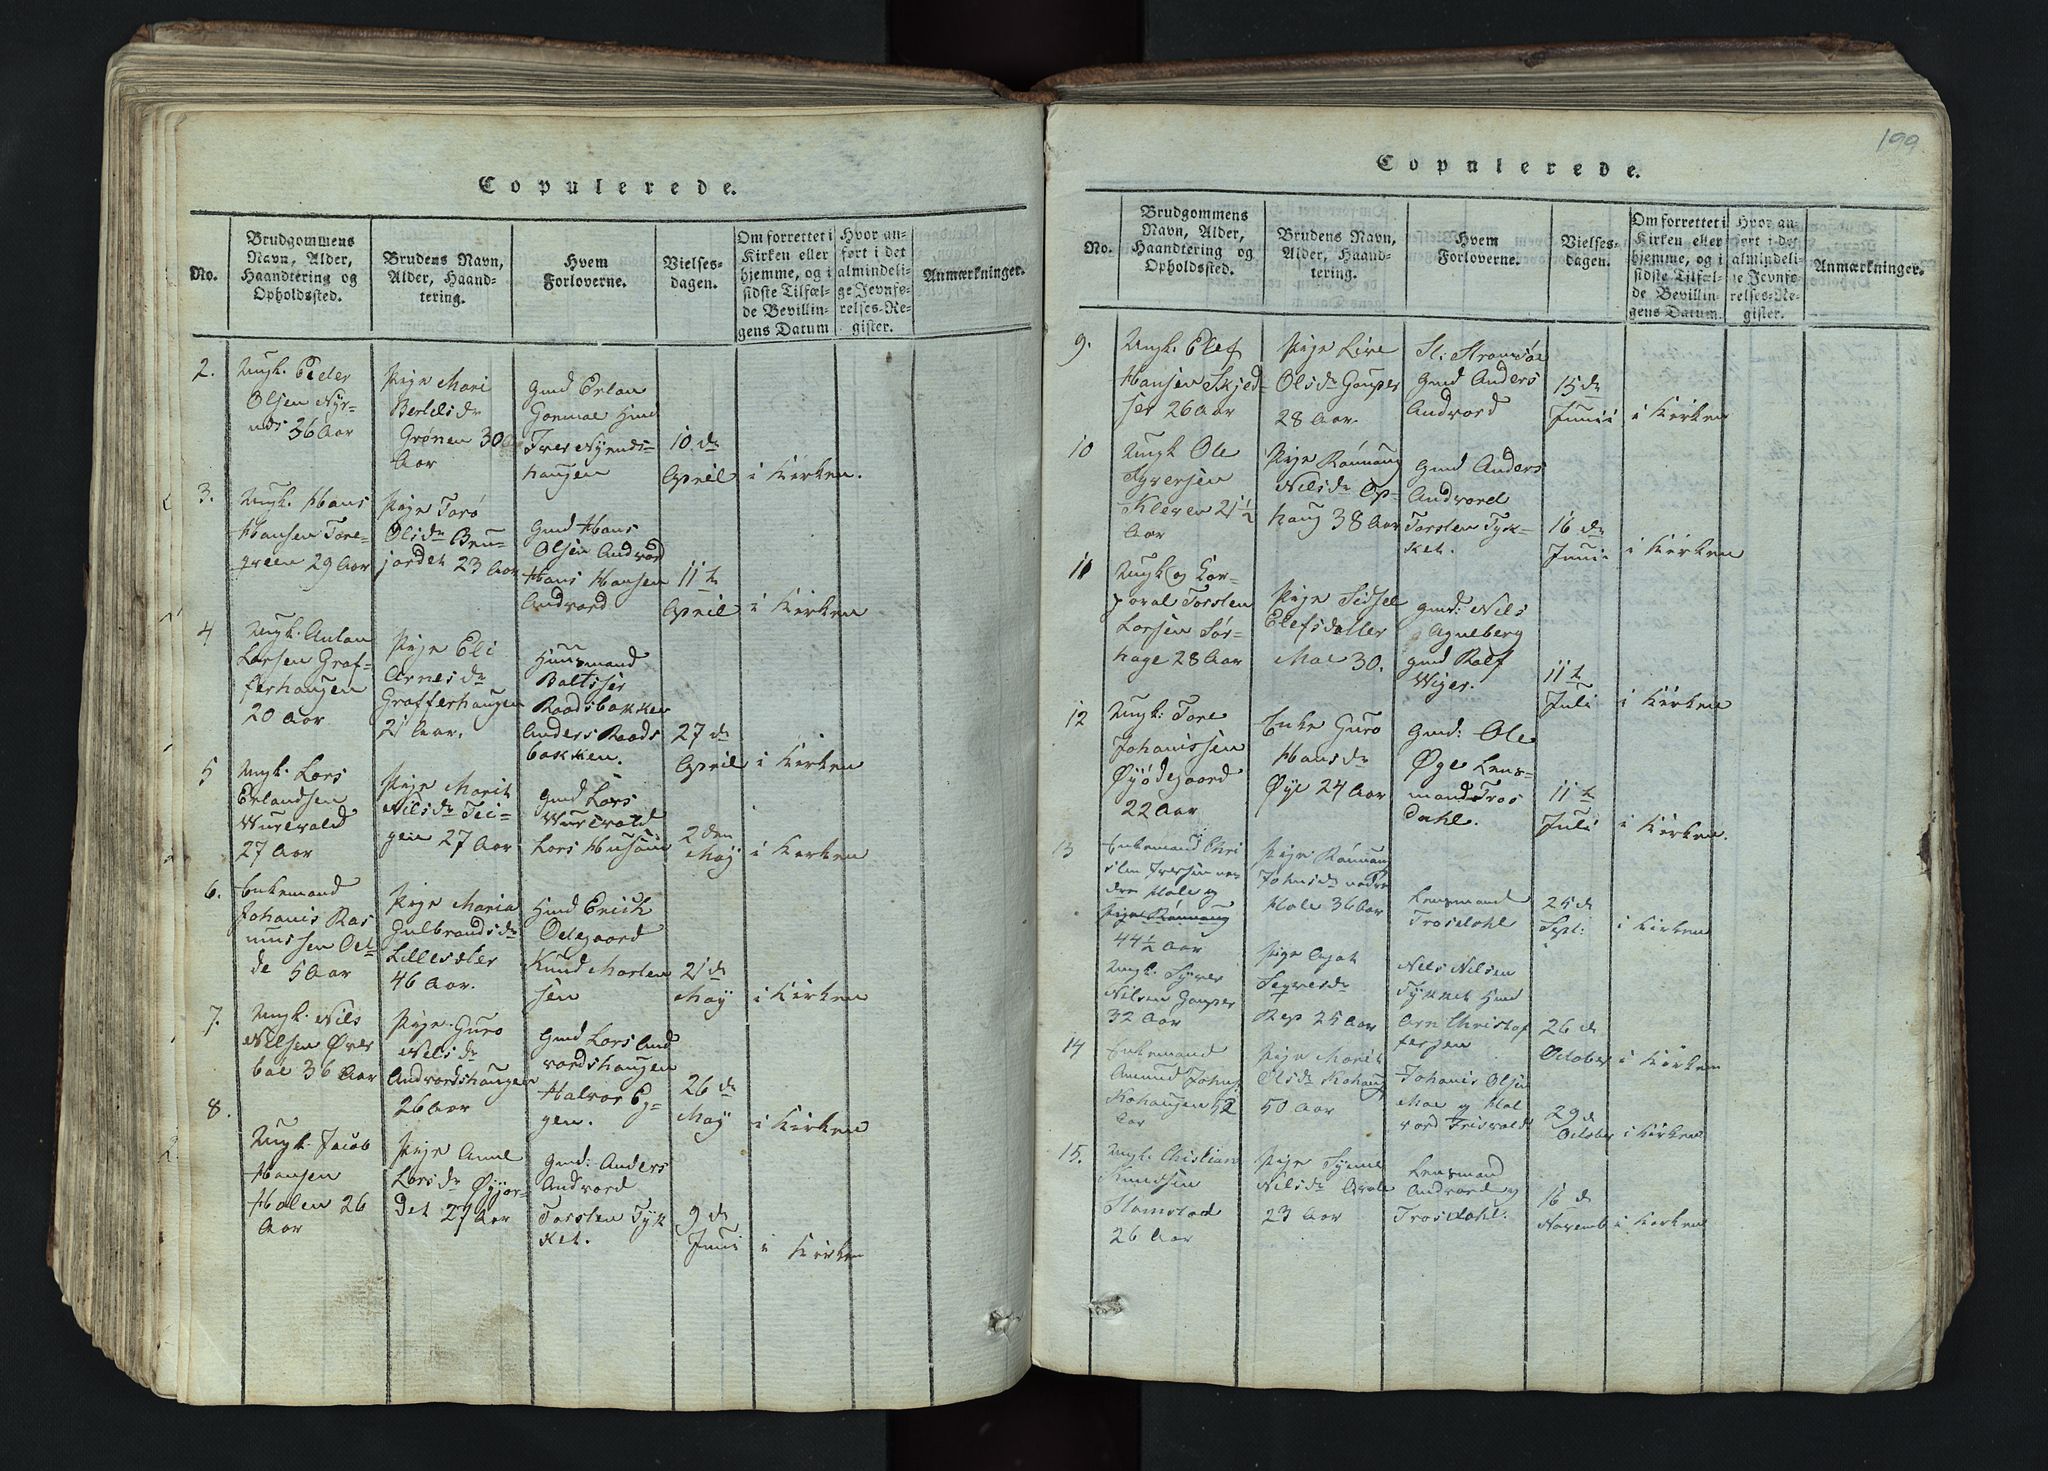 Copulerede.
No.
Brudgommens
Navn, Alder,
Haandtering og
Opholdssted.
Brudens Navn,
Alder, Haand-
tering.
Hvem
Forloverne.
Vielses-
dagen.
Om forrettet i
Kirken eller
hjemme, og i
sidste Tilfæl-
de Bevillin-
gens Datum
Hvor an-
ført i det
almindeli-
ge Jevnfø-
relses-Re-
gister.
Anmærkninger.
2.
Ungk. Peder
Olsen
36 Aar
Pige Mari
Bertelsdr
Grønen 30
Aar
Gmd Erlan
Iver
haugen
10. de
April
i Kirken.
3.
Ungk. Hans
Hansen Tore-
green 29 Aar
Pige Torø
Olsdr Bru-
jordet 23 Aar
Gmd Hans
Olsen Andvord
Hans Hansen
Andvord
11 t
April
i Kirken
4
Ungk. Anton
Larsen Graf-
ferhaugen
20 Aar
Pige Eli
Arnesdr
Grafferhaugen
21 Aar.
Huusmand
Baltsser
Raadsbakken
Anders Raads
bakken.
27 de
April
i Kirken
5
Ungk. Lars
Erlandsen
Wurevald
27 Aar
Pige Marit
Nilsdr Tei-
gen 27 Aar
Gmd Lars
Wurevald
Lars
2 den
May
i Kirken
6.
Enkemand
Johanis Ras
mussen
de 5 Aar
Pige Maria
Gulbrandsdr
Lilleseter
46 Aar.
Hmd Erich
Odegaard
Knud Morten
sen
21 de
May
i Kirken
7.
Ungk. Nils
Nilsen Øver
boe 36 Aar
Pige Guro
Nilsdr
Andvordshaugen
26 Aar
Gmd Lars And
vordshaugen
Halvor Eg-
gen.
26 de
May
i Kirken
8.
Ungk. Jacob
Hansen
Holen 26
Aar
Pige Anne
Larsdr Øyjor-
det 27 Aar
Gmd: Anders
Andvord
Torsten Tyk
ket.
9 de
Juni
i Kirken
199
Copulerede.
No.
Brudgommens
Navn, Alder,
Haandtering og
Opholdssted.
Brudens Navn,
Alder, Haand-
tering.
Hvem
Forloverne.
Vielses-
dagen.
Om forrettet i
Kirken eller
hjemme, og i
sidste Tilfæl-
de Bevillin-
gens Datum.
Hvor an-
ført i det
almindeli-
ge Jevnfø-
relses-Re-
gister.
Anmærkninger.
9.
Ungk. Elef
Hansen Skjed-
ser 26 Aar
Pige Live
Olsdr Gauper
28 Aar.
Gmd Anders
Andvord
15 de
Junii
i Kirken
10
Ungk Ole
Syversen
Kleven 21 1/2
Aar
Pige Rønnaug
Nilsdr Op-
haug 38 Aar
Gmd Anders
Andvord
Torsten Tyk-
ket.
16 de
Junii
i Kirken
11
Ungk og Cor-
poral Torsten
Larsen Sør-
hage 28 Aar
Pige Sidsel
Elefsdatter
Moe 30.
gmd: Nils
Agneberg
gmd Rolf
Wiger.
11 t
Juli
i Kirken
12
Ungk: Tore
Johanissen
Øyødegaard
22 Aar
Enke Guro
Hansdr
Øye 24 Aar
Gmd: Ole
Øye Lens-
mand Tros
dahl.
11 t
Juli
i Kirken.
13
Enkemand Chri
sten Iversen ne-
dre Hole og
Pige Rønnaug
44 1/2 Aar
Pige Rønnaug
Johnsdr nedre
Hole 36 Aar
Lensmand
Trosdahl
25 de
Sept:
i Kirken
Ungk: Syver
Nilsen Gauper
32 Aar
Pige
Rep 25 Aar
Nils Nilsen
Tykket Hmd
Arn Christof
fersen
26 de
October
i Kirken
14
Enkemand
Amund Johns:
Kohaugen 52
Aar
Pige Marit
Olsdr Kohaug
50 Aar
Johanis Olsen
Moe og Hal
vord Frisvold
29 de
October
i Kirken
15.
Ungk. Christian
Knudsen
Slamstad
26 Aar
Pige Synne
Nilsdr Qvale
23 Aar
Lensmand
Andvord og
Trosdahl.
16 de
Novemb
i Kirken